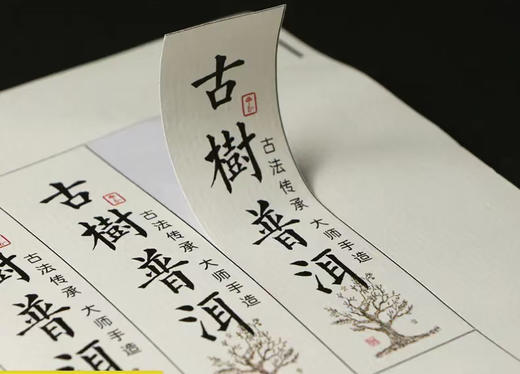 古樹普洱
古法传承 大师手造
古樹普洱
古法传承 大师手造
樹普洱
古法传承 大师手造